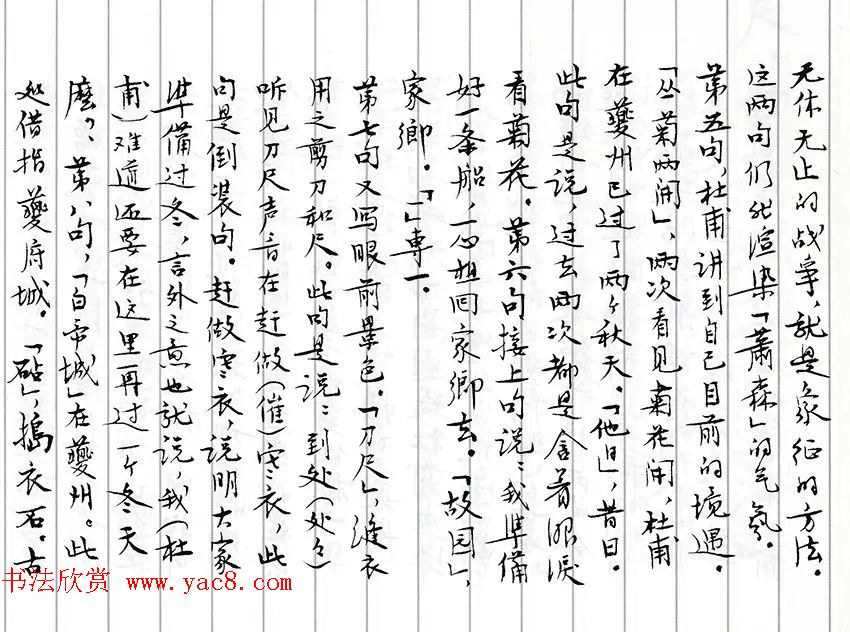 无休无止的战事，就是象征的方法。
这两句们能渲染「萧森」的气氛。
第五句，杜甫讲到自己目前的境遇。
「丛菊两开」，两次看见菊花开，杜甫
在夔州已过了两个秋天。「他日」，昔日。
此句是说，过去两次都是含着眼泪
看菊花。第六句接上句说：我準備
好一条船，一心想回家鄉去。「故园」，
家鄉。「一」專一。
第七句又写眼前景色。「刀尺」，缝衣
用之剪刀和尺。此句是说：到处（处々）
听见刀尺声音在赶做（催）寒衣，此
句是倒装句。赶做寒衣，说明大家
準備过冬，言外之意也就说，我（杜
甫）难道还要在这里再过一个冬天
麽？、第八句，「白帝城」在夔州。此
处借指夔府城。「砧」，搗衣石。古
书法欣赏 www.yac8.com